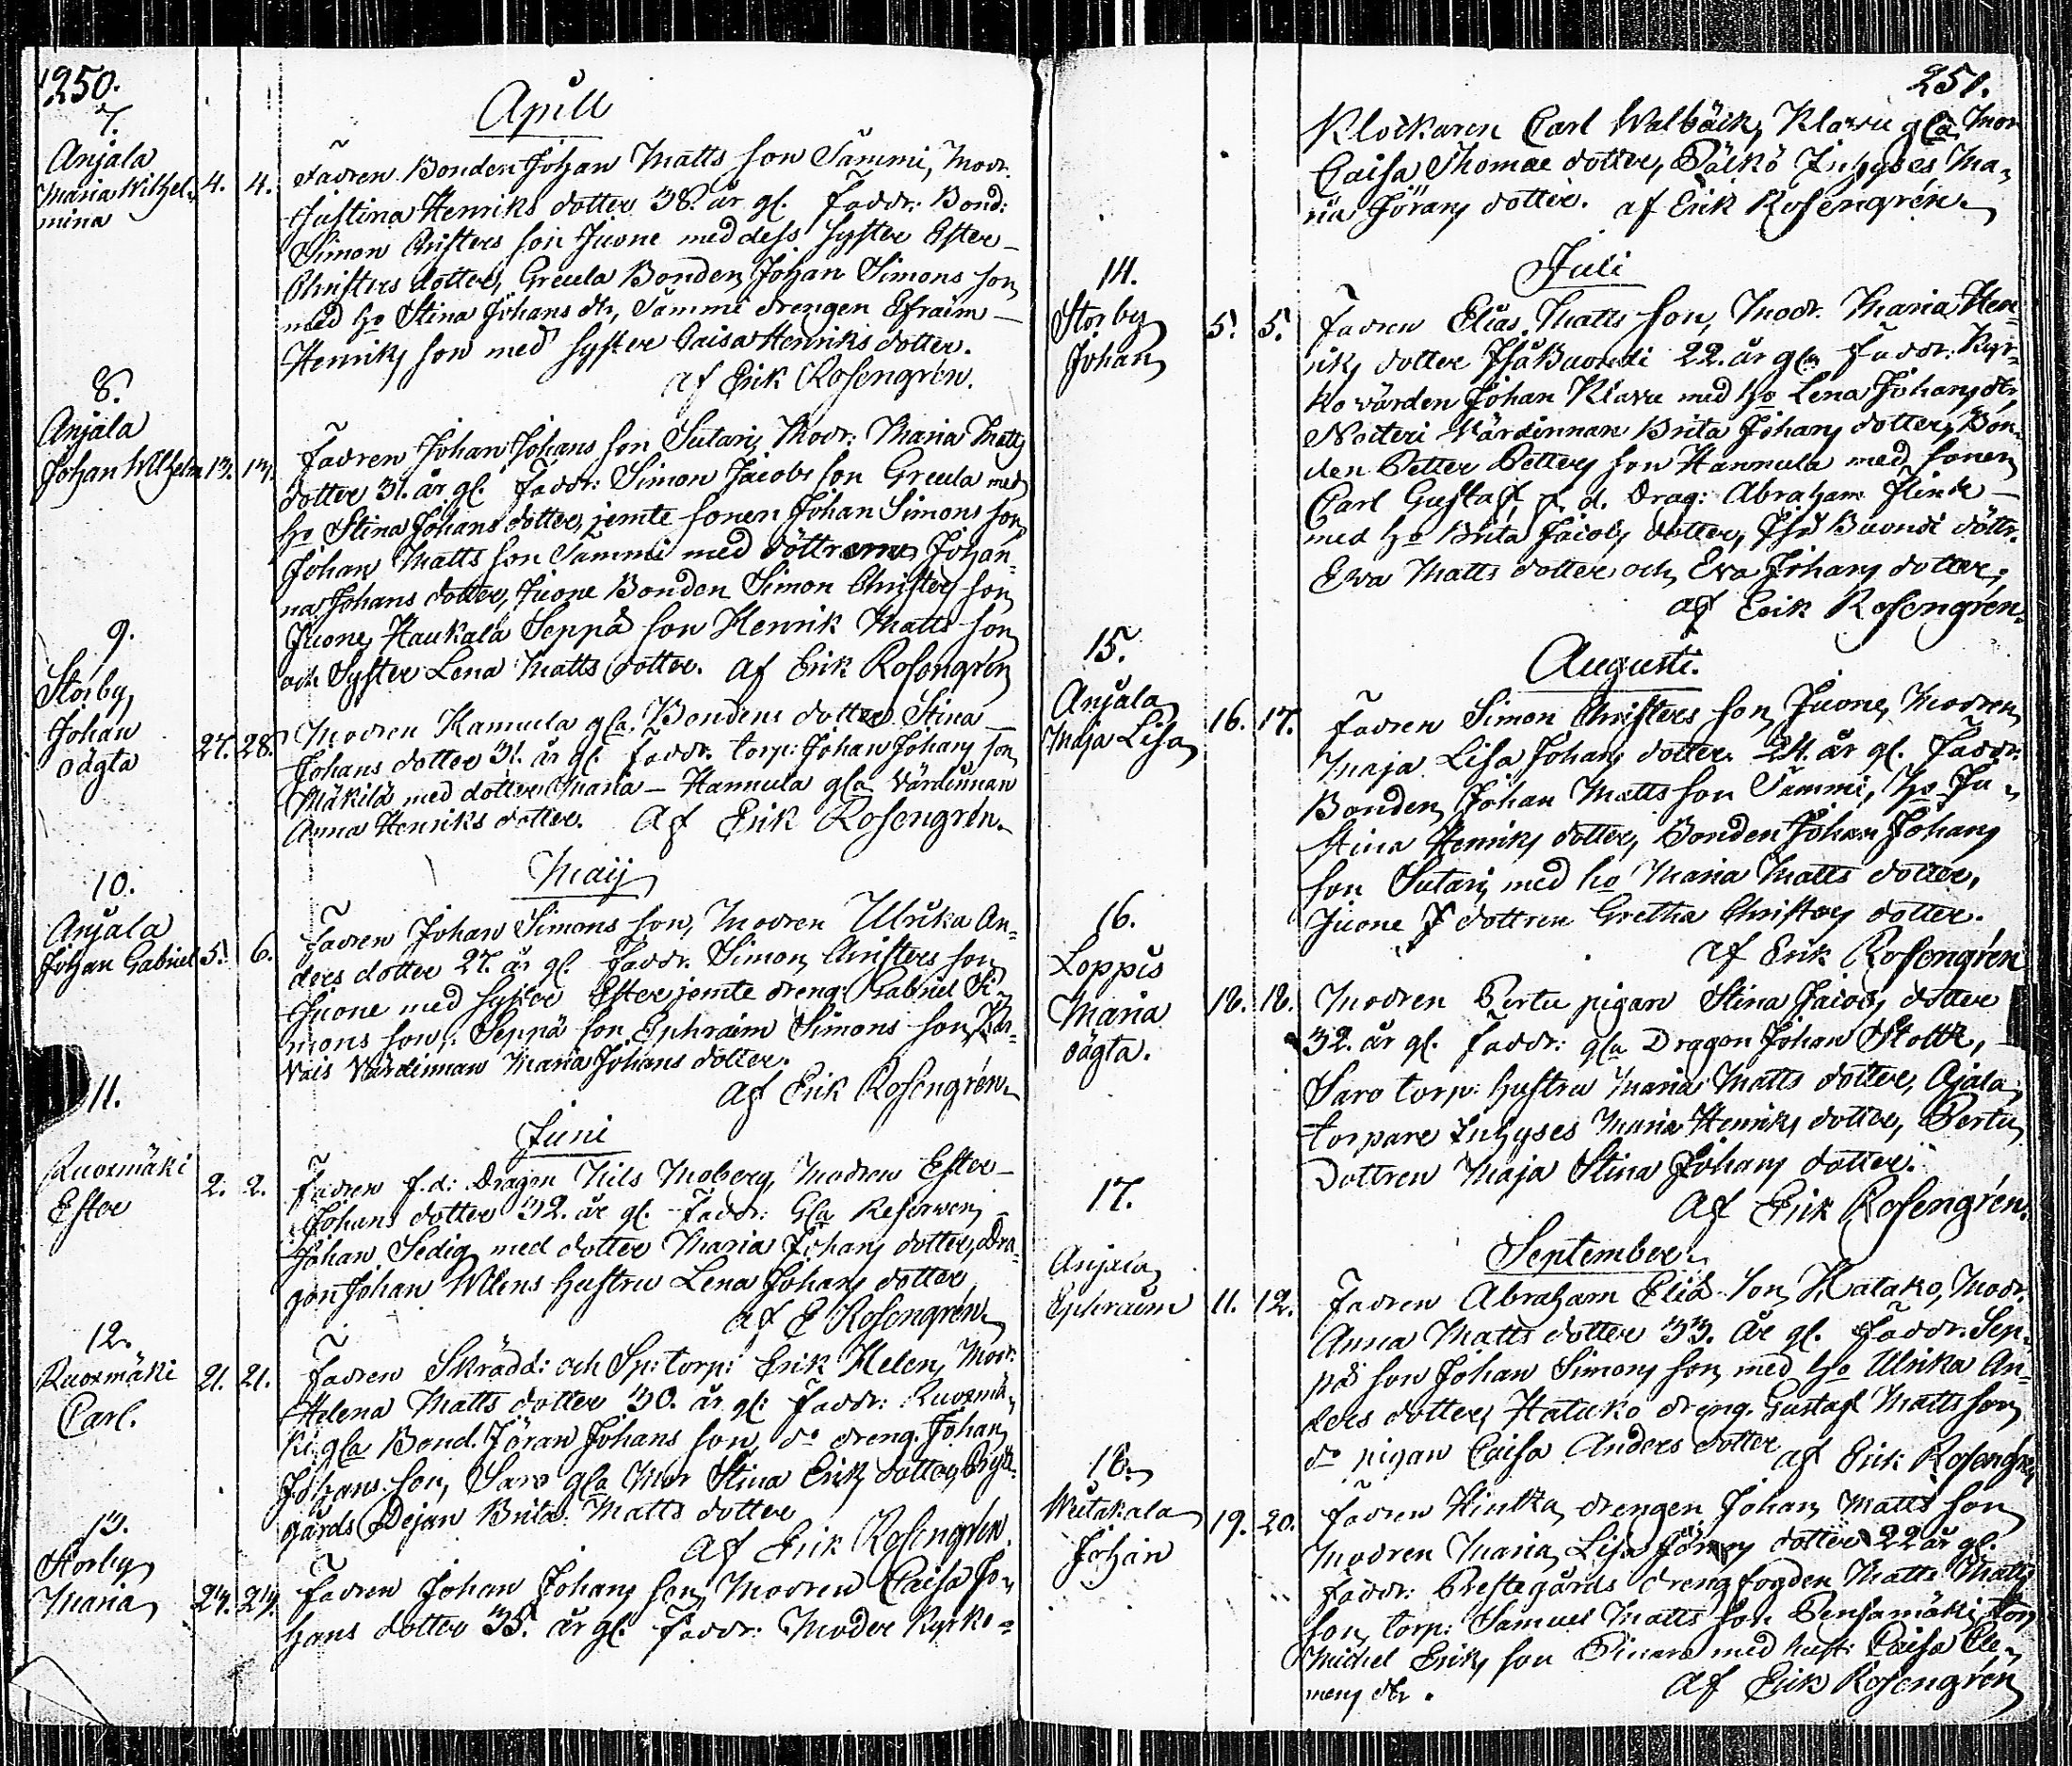 250.
April
7.
Anjala
Maria Wilhel-
mina
4. 4.
Fadren Bonden Johan Matts son Sammi, Modr.
Justina Henriks dotter 38. år gl. Faddr: Bond:
Simon Christers son Juone med dess Syster Ester
Christers dotter, Greula Bonden Johan Simons son
med ho Stina Johans dtr, Sammi drengen Efraim
Henriks son med Syster Caisa Henriks dotter.
af Erik Rosengrén.
8.
Anjala
Johan Wilhelm 13. 13.
Fadren Johan Johans son Sutari, Modr: Maria Matts
dotter 31. år gl. Faddr: Simon Jacobs son Greula med
ho Stina Johans dotter, jemte sonen Johan Simons son
Johan Matts son Sammi med döttrarne Johan-
na Johans dotter, Juone Bonden Simon Christers son
Juone, Haukala Seppä son Henrik Matts son
och Syster Lena Matts dotter. af Erik Rosengrén
9.
Storby
Johan
oägta
27. 28.
Modren Hannula gla Bondens dotter Stina
Johans dotter 31. år gl. Faddr. torp: Johan Johans son
Mäkilä med dotter Maria – Hannula gla Värdinnan
Anna Henriks dotter. Af Erik Rosengrén.
Maij
10.
Anjala
Johan Gabriel 5. 6.
Fadren Johan Simons son, Modren Ulrika An-
ders dotter 27. år gl. Faddr. Simon Christers son
Juone med Syster Ester jemte dreng: Gabriel Si-
mons son, Seppä son Ephraim Simons son,
Värdinnan Maria Johans dotter.
af Erik Rosengrén
Juni
11.
Ruoxmäki
Ester
2. 2.
Fadren f.d: Dragon Nils Moberg, Modren Ester
Johans dotter 32. år gl. Faddr: Gla Reserven
Johan Sedig med dotter Maria Johans dotter, Dra-
gon Johan Wilens Hustru Lena Johans dotter
af E Rosengrén
12.
Ruoxmäki
Carl.
21. 21.
Fadren Skrädd: och Sp: torp: Erik Helen, Modr:
Helena Matts dotter 30. år gl: Faddr: Ruoxmä-
ki gla Bond. Jöran Johans son, do dreng. Johan
Johans son, Saro gla Mor Stina Eriks dotter,
gårds Dejan Brita Matts dotter
af Erik Rosengrén.
13.
Storby
Maria 23. 23.
Fadren Johan Johans son, Modren Caisa Jo-
hans dotter 35. år gl. Faddr: Moder Kyrko-
251.
Klockaren Carl Walbäck, Klavu gla Mor
Caisa Thomae dotter, Pälkö Inhyses Ma-
ria Jörans dotter. af Erik Rosengrén.
Juli
14.
Storby
Johan
5. 5.
Fadren Elias Matts son, Modr. Maria Hen-
riks dotter Iså Buondi 22. år gla Faddr: Kyr-
ko värden Johan Klavu med ho Lena Johans dtr,
Noiteri Värdinnan Brita Johans dotter, Bon-
den Petter Petters son Hannula med sonen
Carl Gustaf, f. d. Drag: Abraham Flink
med ho Brita Jacobs dotter, Iså Buondi döttr.
Eva Matts dotter och Eva Johans dotter.
af Erik Rosengrén.
Augusti.
15.
Anjala
Maja Lisa
16. 17.
Fadren Simon Christers son Juone, Modren
Maja Lisa Johans dotter 24. år gl. Faddr:
Bonden Johan Matts son Sammi, ho Ju-
stina Henriks dotter, Bonden Johan Johans
son Sutari, med ho Maria Matts dotter,
Juone dottren Gretha Christers dotter.
af Erik Rosengrén
16.
Loppis
Maria
oägta.
18. 18.
Modren Pertu pigan Stina Jacobs dotter
32. år gl. Faddr: gla Dragon Johan Stolt,
Saro torp: Hustru Maria Matts dotter, Ajala
torpare Inhyses Maria Henriks dotter, Pertu
Dottren Maja Stina Johans dotter.
Af Erik Rosengrén.
September
17.
Anjala
Ephraim 11. 12.
Fadren Abraham Eliä son Hatako, Modr.
Anna Matts dotter 33. år gl. Faddr. Sep-
pä son Johan Simons son med ho Ulrika An-
ders dotter, Hatako dreng. Gustaf Matts son
do pigan Caisa Anders dotter af Erik Rosengrén
18.
Wutakala
Johan
19. 20.
Fadren Hintka drengen Johan Matts son
Modren Maria Lisa Jörans dotter 22 år gl.
Faddr: Prestegårds drengfogden Matts Matts
son, torp: Samuel Matts son Pensamäki, torp
Michel Eriks son med hust: Caisa Cle-
mens dtr.
af Erik Rosengrén